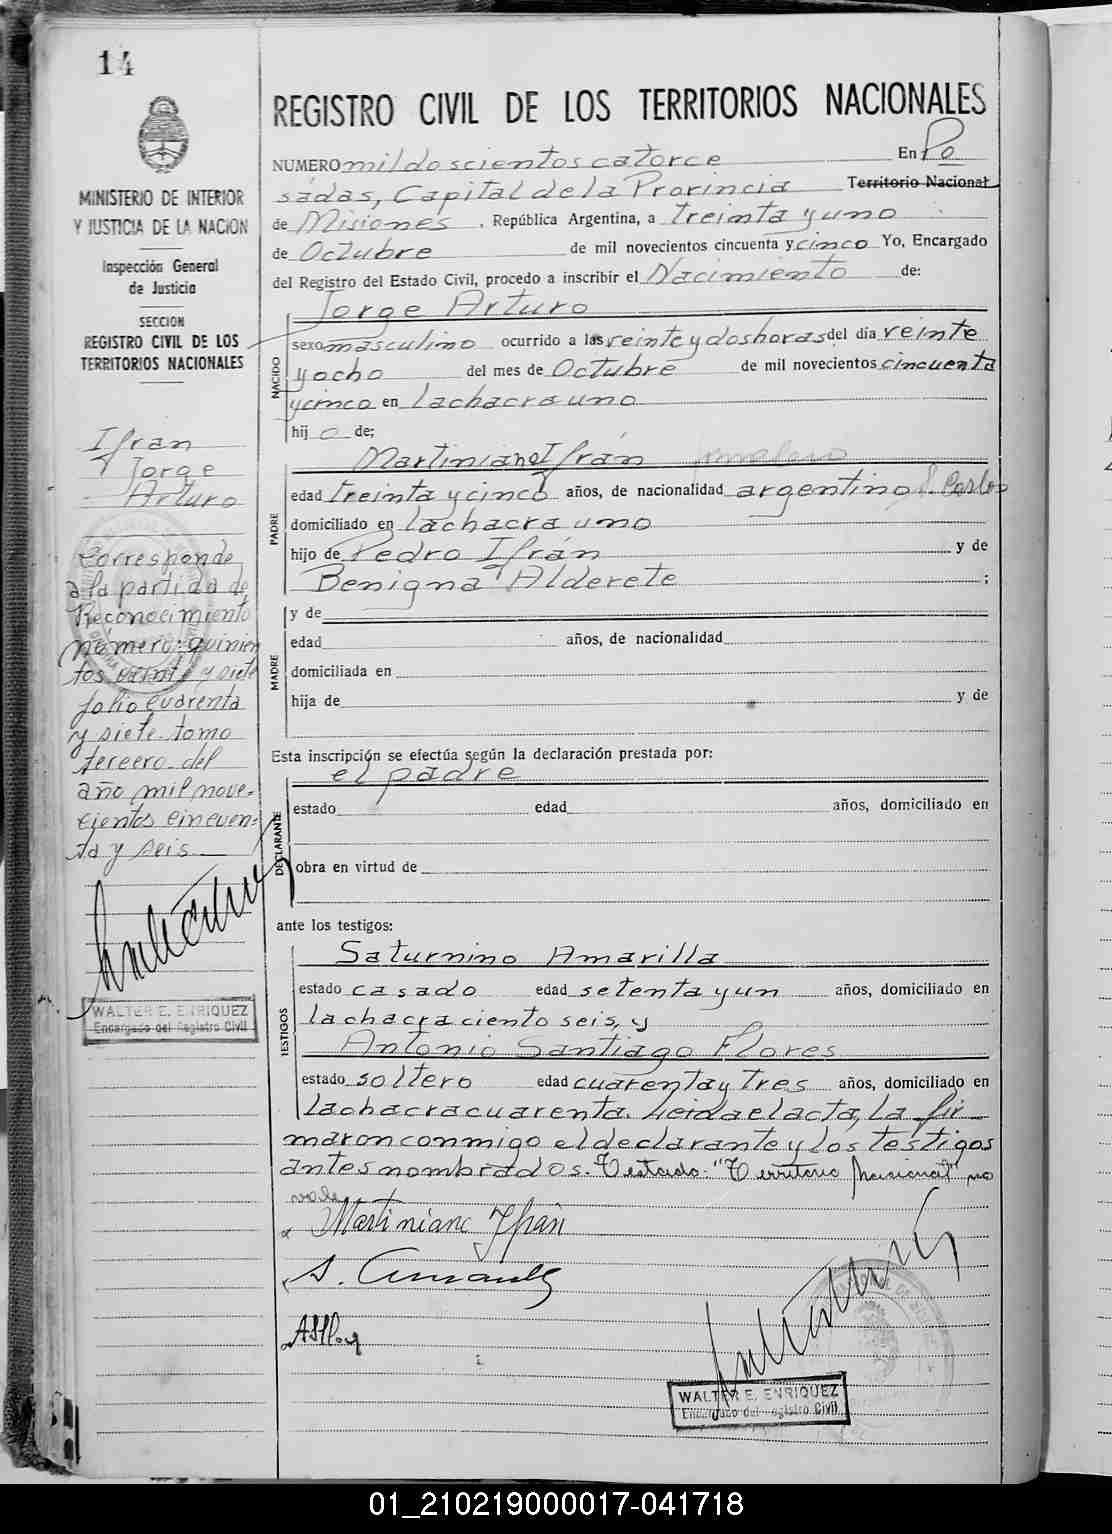 14
MINISTERIO DE INTERIOR
Y JUSTICIA DE LA NACION
Inspección General
de Justicia
SECCION
REGISTRO CIVIL DE LOS
TERRITORIOS NACIONALES
Ifran
Jorge
Arturo
Corresponde
a la partida de
Reconocimiento
número: quinien
tos veinte y siete
folio cuarenta
y siete tomo
tercero del
año mil nove-
cientos cincuen-
ta y seis
WALTER E. ENRIQUEZ
Encargado del Registro Civil
REGISTRO CIVIL DE LOS TERRITORIOS NACIONALES
NUMERO mil doscientos catorce En Po
sadas, Capital de la Provincia Territorio Nacional
de Misiones, República Argentina, a treinta y uno
de Octubre de mil novecientos cincuenta y cinco Yo, Encargado
del Registro del Estado Civil, procedo a inscribir el Nacimiento de:
NACIDO
Jorge Arturo
sexo masculino ocurrido a las veinte y dos horas del día veinte
y ocho del mes de Octubre de mil novecientos cincuenta
y cinco en la chacra uno
hij o de;
PADRE
Martiniano Ifrán jornalero
edad treinta y cinco años, de nacionalidad argentino S. Carlos
domiciliado en la chacra uno
hijo de Pedro Ifrán y de
Benigna Alderete ;
MADRE
y de
edad años, de nacionalidad
domiciliada en
hija de y de
Esta inscripción se efectúa según la declaración prestada por:
DECLARANTE
el padre
estado edad años, domiciliado en
obra en virtud de
ante los testigos:
TESTIGOS
Saturnino Amarilla
estado casado edad setenta y un años, domiciliado en
la chacra ciento seis, y
Antonio Santiago Flores
estado soltero edad cuarenta y tres años, domiciliado en
la chacra cuarenta. Leida el acta, la fir
maron conmigo el declarante y los testigos
antes nombrados. Testado: "Territorio Nacional" no
vale
Martiniano Ifrán
WALTER E. ENRIQUEZ
Encargado del Registro Civil
01_210219000017-041718